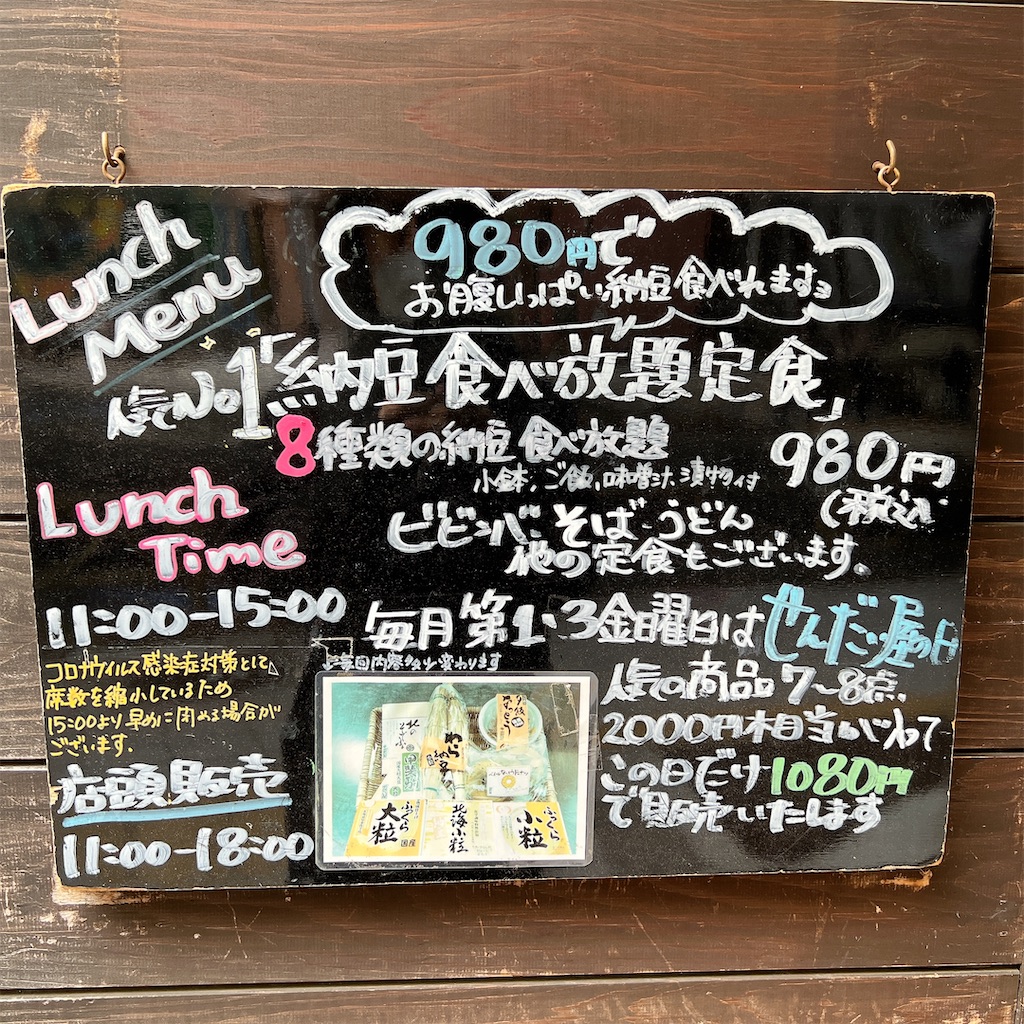 Lunch
Menu
980円で
お腹いっぱい納豆食べれますョ
人気No1「納豆食べ放題定食」
8種類の納豆食べ放題
小鉢、ご飯、味噌汁、漬物付
980円
(税込)
ビビンバ・そば・うどん
他の定食もございます。
Lunch
Time
11:00-15:00
コロナウイルス感染症対策として
席数を縮小しているため
15:00より早めに閉める場合が
ございます。
店頭販売
11:00-18:00
毎月第1・3金曜日はせんだい屋の日
毎回内容が少し変わります
人気の商品7〜8点
2000円相当がぜんぶ入って
この日だけ1080円
で販売いたします
わら
納豆
なっとう
ふっくら
大粒
国産
北海小粒
ふっくら
小粒